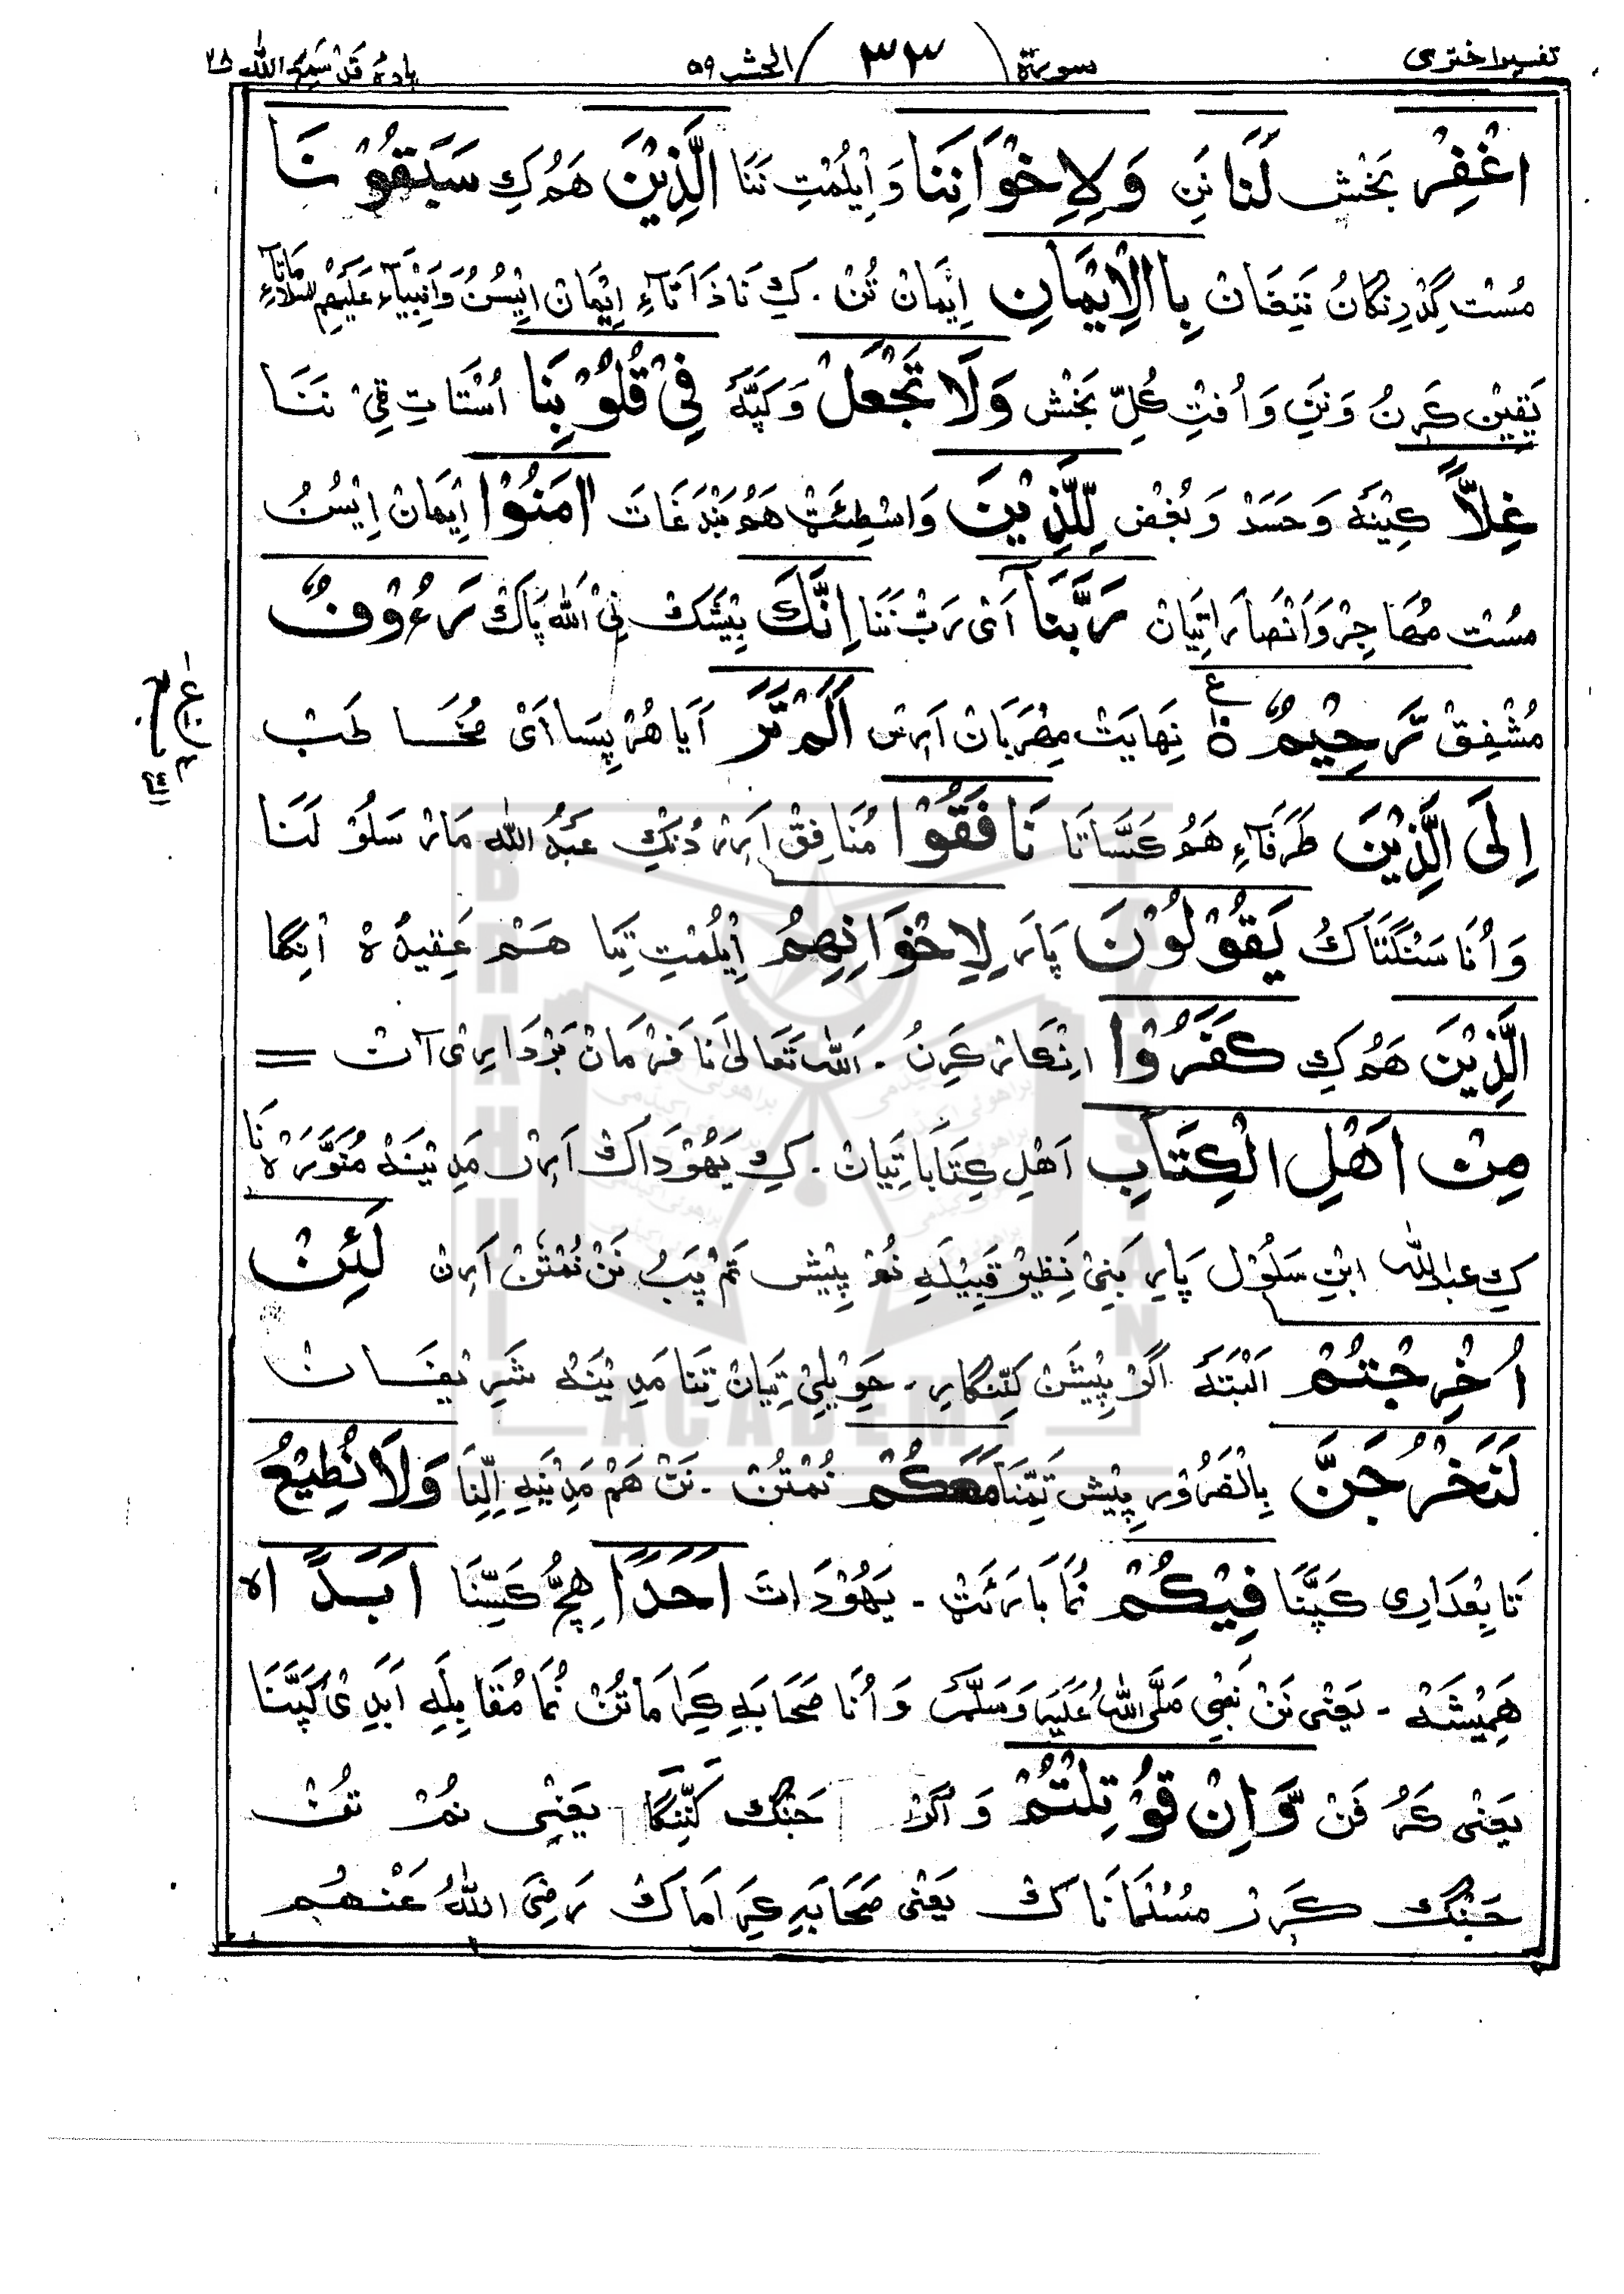 تفسیر اختری سورة ٣٣ الحشر ٥٩ پاره قد سمع الله ٢٨
اغْفِرْ بَخش لَنَا نَنِ وَلِاِخْوَانِنَا وَ اِیلُمتِ نَنَا الَّذِیْنَ هَمُ كِ سَبَقُوْنَا
مُسْت گِدْرِنگانُ نَنِقَان بِالْاِیْمَانِ اِیْمَان تُنْ . كِ نَا ذَاتَاءِ اِیْمَان اِیْسُنُ وَ اَنْبِیَاء عَلَیْهِمُ السَّلَامتَاءِ
یَقِیْن كَرِنُ وَ نَنِ وَ اُفتِ كُلِّ بَخْش وَلَا تَجْعَلْ وَ كَپَّهْ فِیْ قُلُوْبِنَا اُسْتَاتِ قِیْ نَنَا
غِلًّا كِیْنَهْ وَ حَسَدْ وَ بُغْض لِّلَّذِیْنَ وَاسْطِئَٹ هَمُ بَنْدَغَات اٰمَنُوْا اِیْمَان اِیْسُنُ
مُسْت مُهَاجِرْ وَ اَنْصَارَاتِیَان رَبَّنَا اَیْ رَبّ نَنَا اِنَّكَ بِیْشَك نِیْ الله پَاك رَءُوْفٌ
مُشْفِقْ رَّحِیْمٌ ۀ نِهَایَتْ مِهْرَبَان اَرِس اَلَمْ تَرَ اَیَا هُرْ پِیسَا اَیْ مُخَـا طَبْ
اِلَى الَّذِیْنَ طَرَفَاءِ هَمُ كَسَّاتَا نَافَقُوْا مُنَافِقْ اَرِرْ دُنْكِ عَبْدُ الله مَار سَلُوْ لَنَا
وَ اُنَا سَنْگَتَاكُ یَقُوْلُوْنَ پَارَ لِاِخْوَانِهِمُ اِیْلُمْتِ تِنَا هَـم عَقِیْدَهْ اَنگا
الَّذِیْنَ هَمُ كِ كَفَرُوْا اِنْكَار كَرِنُ . الله تَعَالٰى نَا فَرْمَان بَرْدَارِیْ آن =
مِنْ اَهْلِ الْكِتٰبِ اَهْلِ كِتَابَاتِیَان . كِ یَهُوْدَاك اَرِرْ مَدِیْنَهْ مُنَوَّرَهْ نَا
كِ عبدالله ابْنِ سَلُوْل پَارِ بَنِیْ نَظِیْر قَبِیْلَهِ نُمْ پِیْش تَمْ پَبُ نَنْ نُمْتُنْ اَرِنْ لَئِنْ
اُخْرِجْتُمْ اَلْبَتَهْ اَگَرْ پِیْشَنْ كِنِّنگارِ . حَوِیْلِیْ تِیَان تِنَا مَدِیْنَهْ شَرِیْفَـان
لَنَخْرُجَنَّ بِالضَّرُوْر پِیْش تَمِّنَا مَعَكُمْ نُمْتُنْ . نَنْ هَمْ مَدِیْنَهِ اِلِّنَا وَلَا نُطِیْعُ
تَابِعْدَارِی كَپَّنَا فِیْكُمْ نُمَا بَارَئَٹْ . یَهُوْدَات اَحَدًا هِچُّ كَسِّنَا اَبَـدًا اہ
هَمِیْشَهْ . یَعْنِی نَنْ نَبِیْ صَلَّى اللهُ عَلَیْهِ وَسَلَّمْ وَ اُنَا صَحَابَهِ كِرَامَاتُنْ نُمَا مُقَابِلَهِ اَبَدِیْ كَپَّنَا
یَعْنِی كَرُ فَنْ وَّاِنْ قُوْتِلْتُمْ وَ اَگر جَنْگ كَنِّنگا یَعْنِی نُمْ تُنْ
جَنْگ كَرَر مُسُلْمَانَاك یَعْنِی صَحَابَهِ كِرَامَاك رَضِیَ اللهُ عَنْـهُم